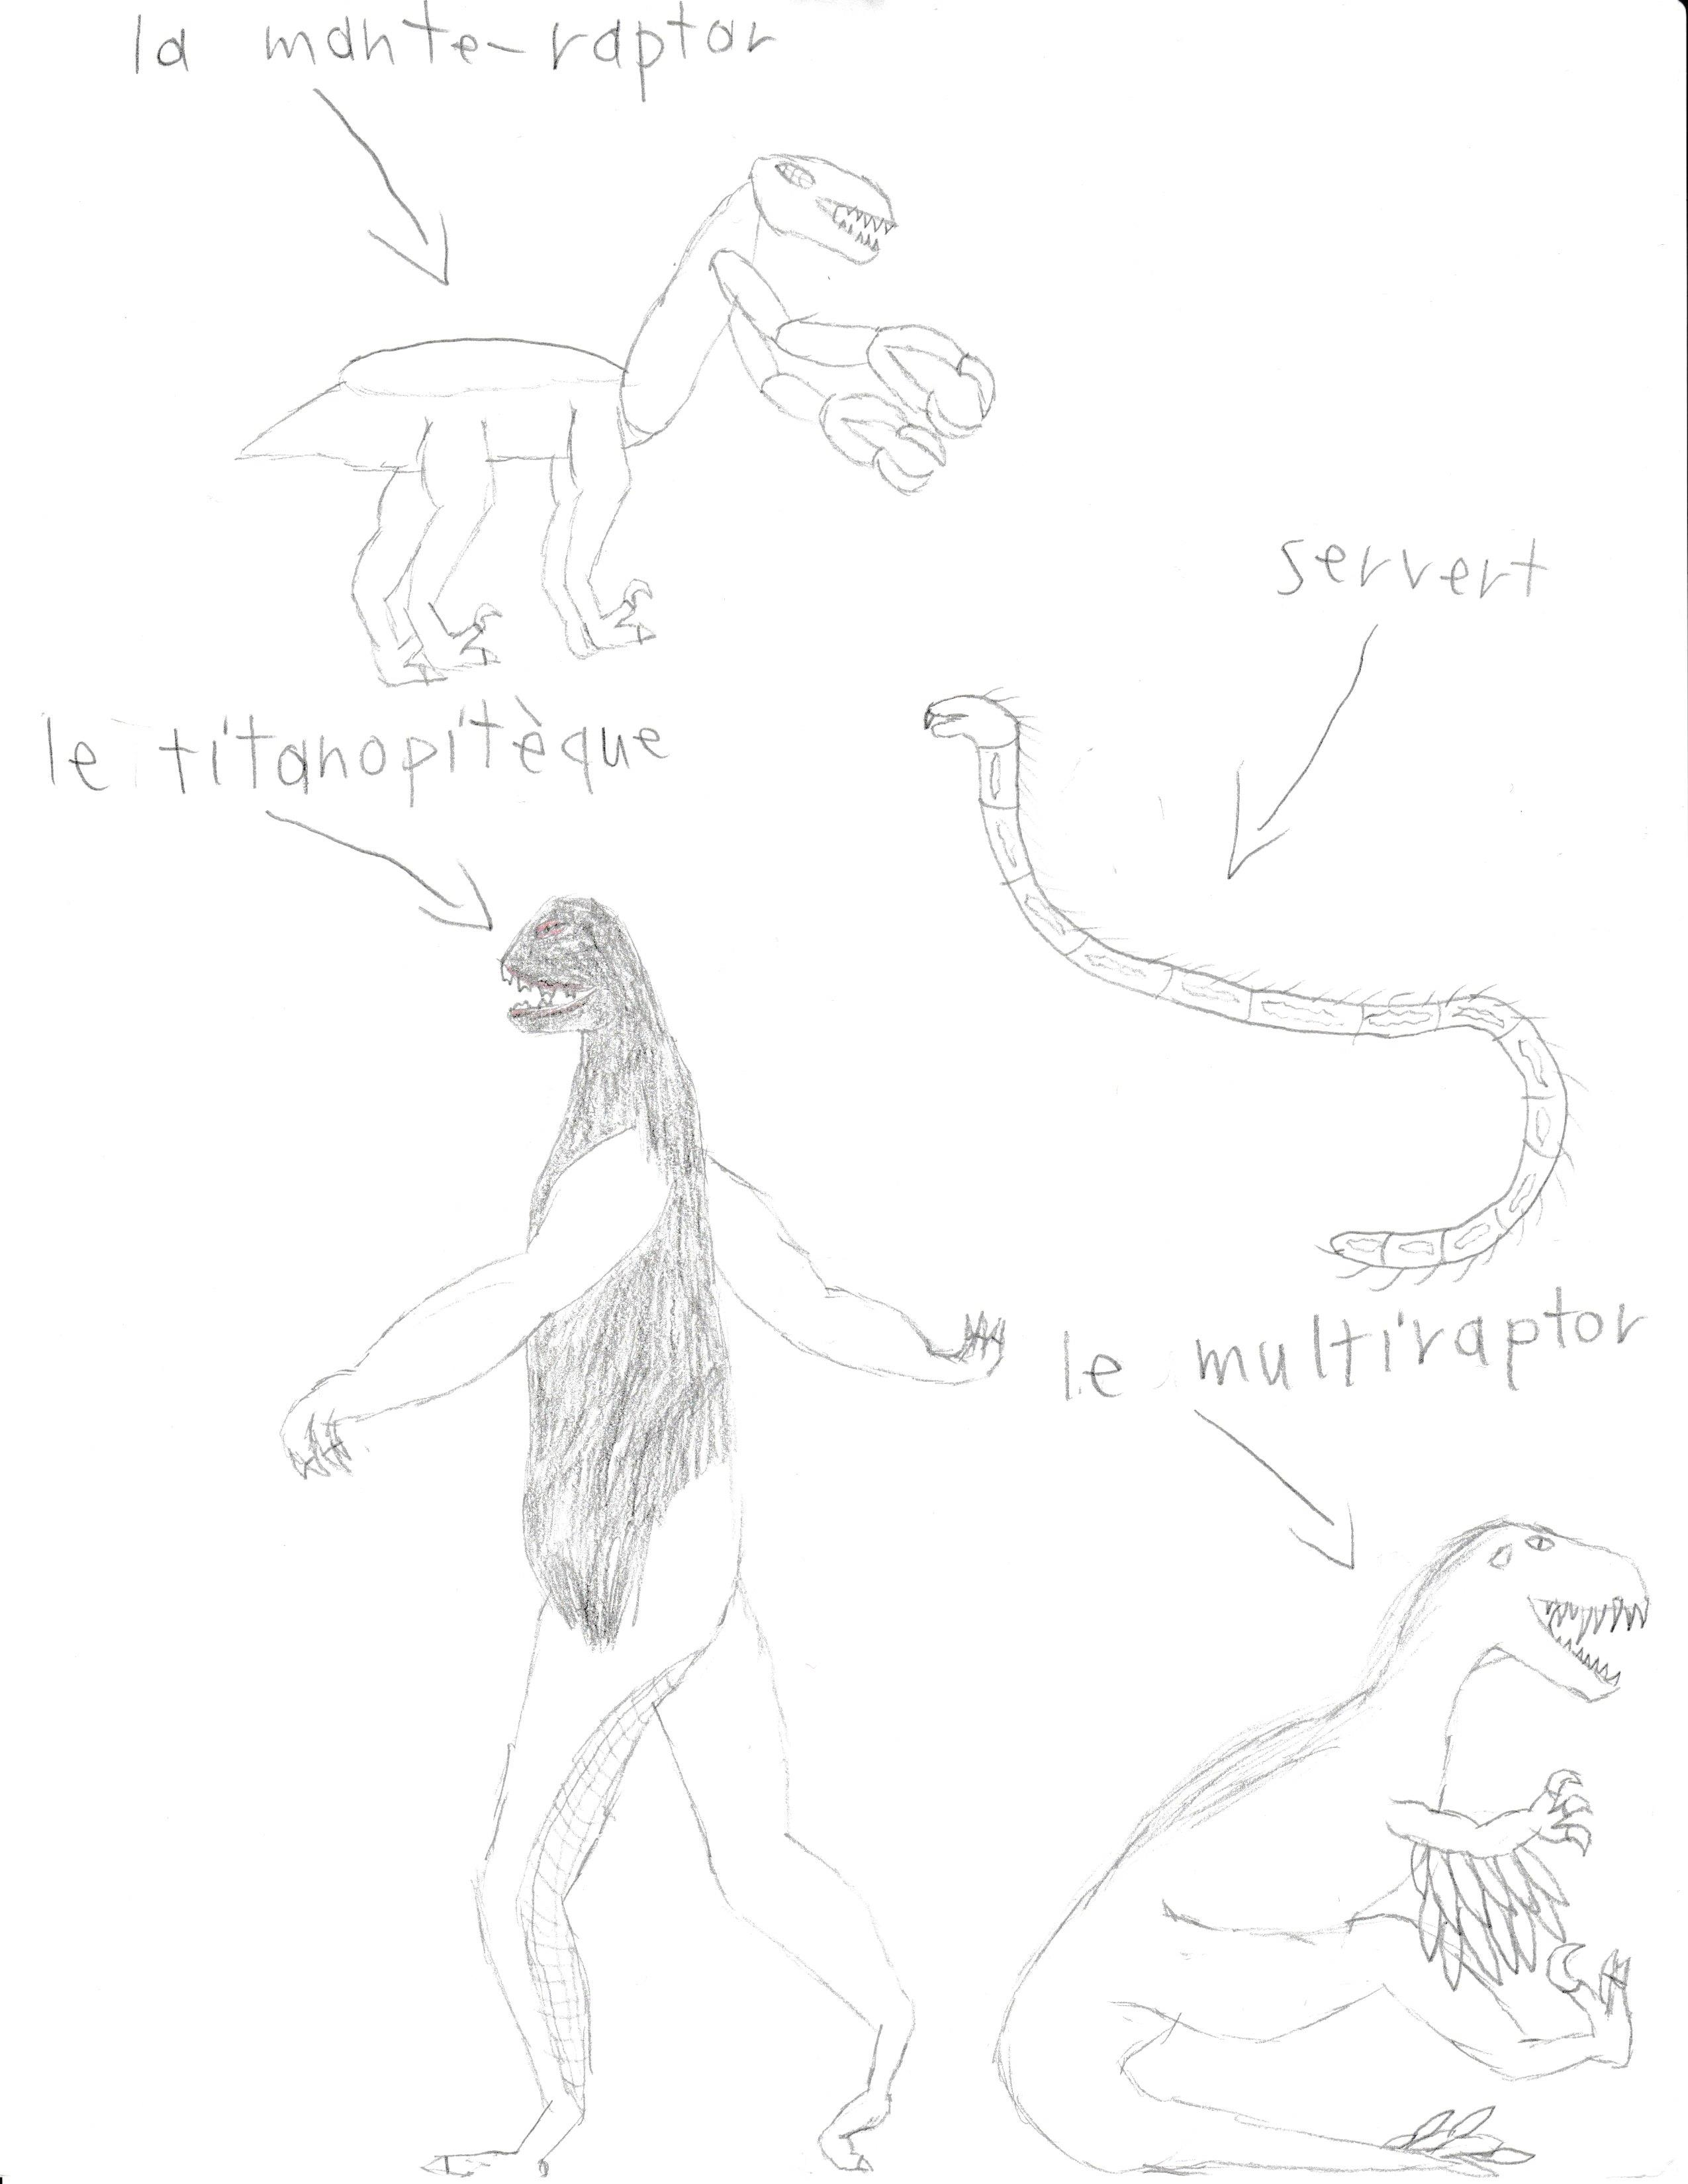 la mante-raptor
servert
le titanopitèque
le multiraptor